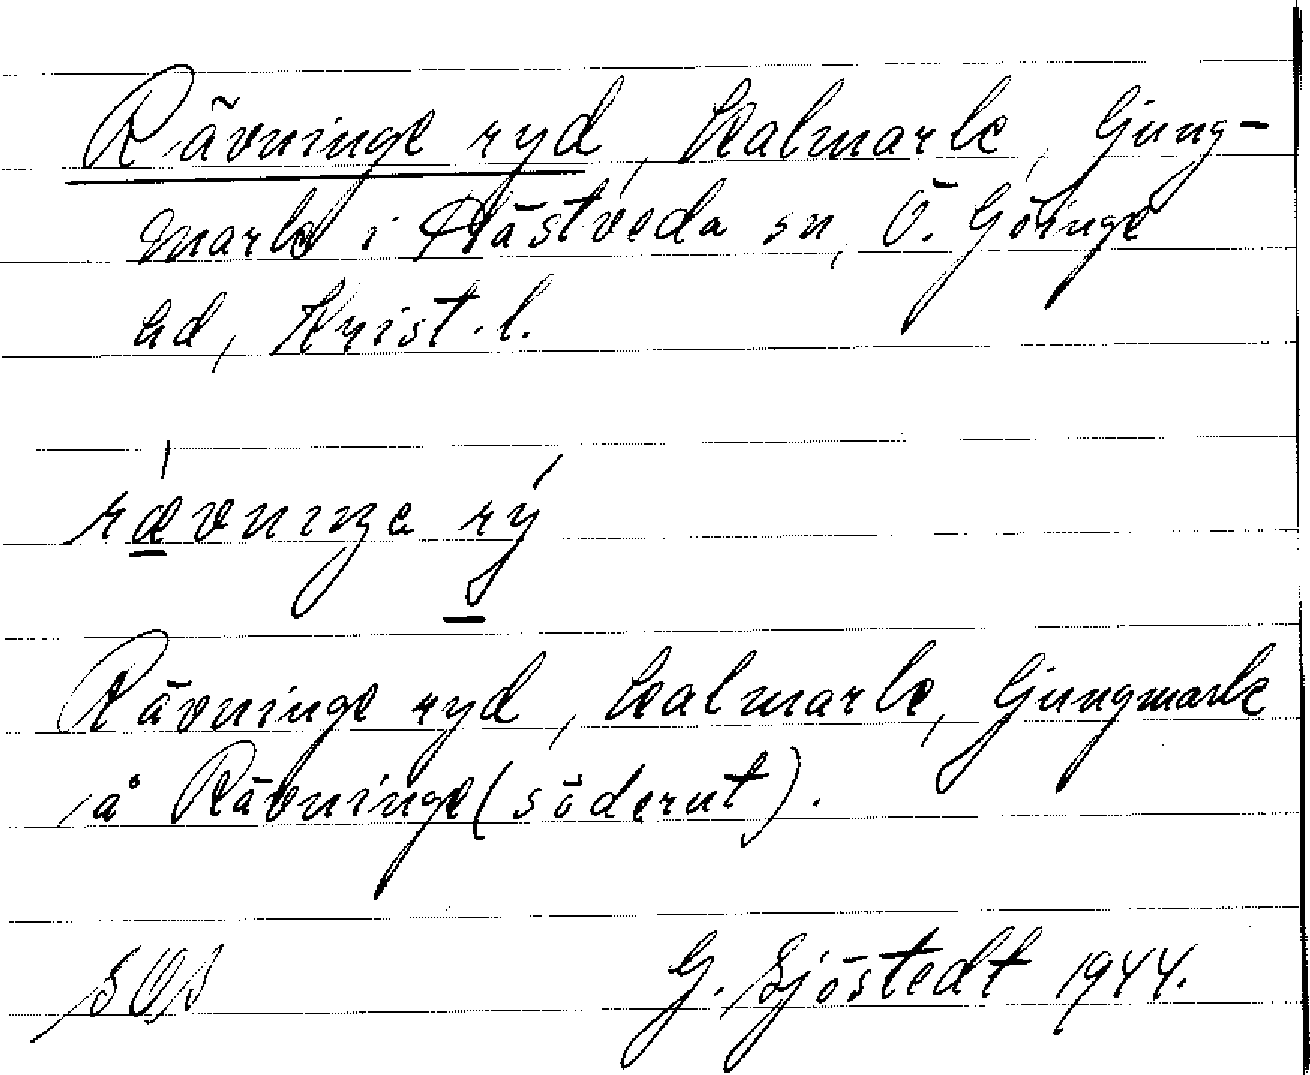 Rävninge ryd, kalmark, ljung-
mark i Hästveda sn, Ö. Göinge
hd, Krist. l.
rævninge rý
Rävninge ryd, kalmark, ljungmark
å Rävninge (söderut).
G. Sjöstedt 1944.